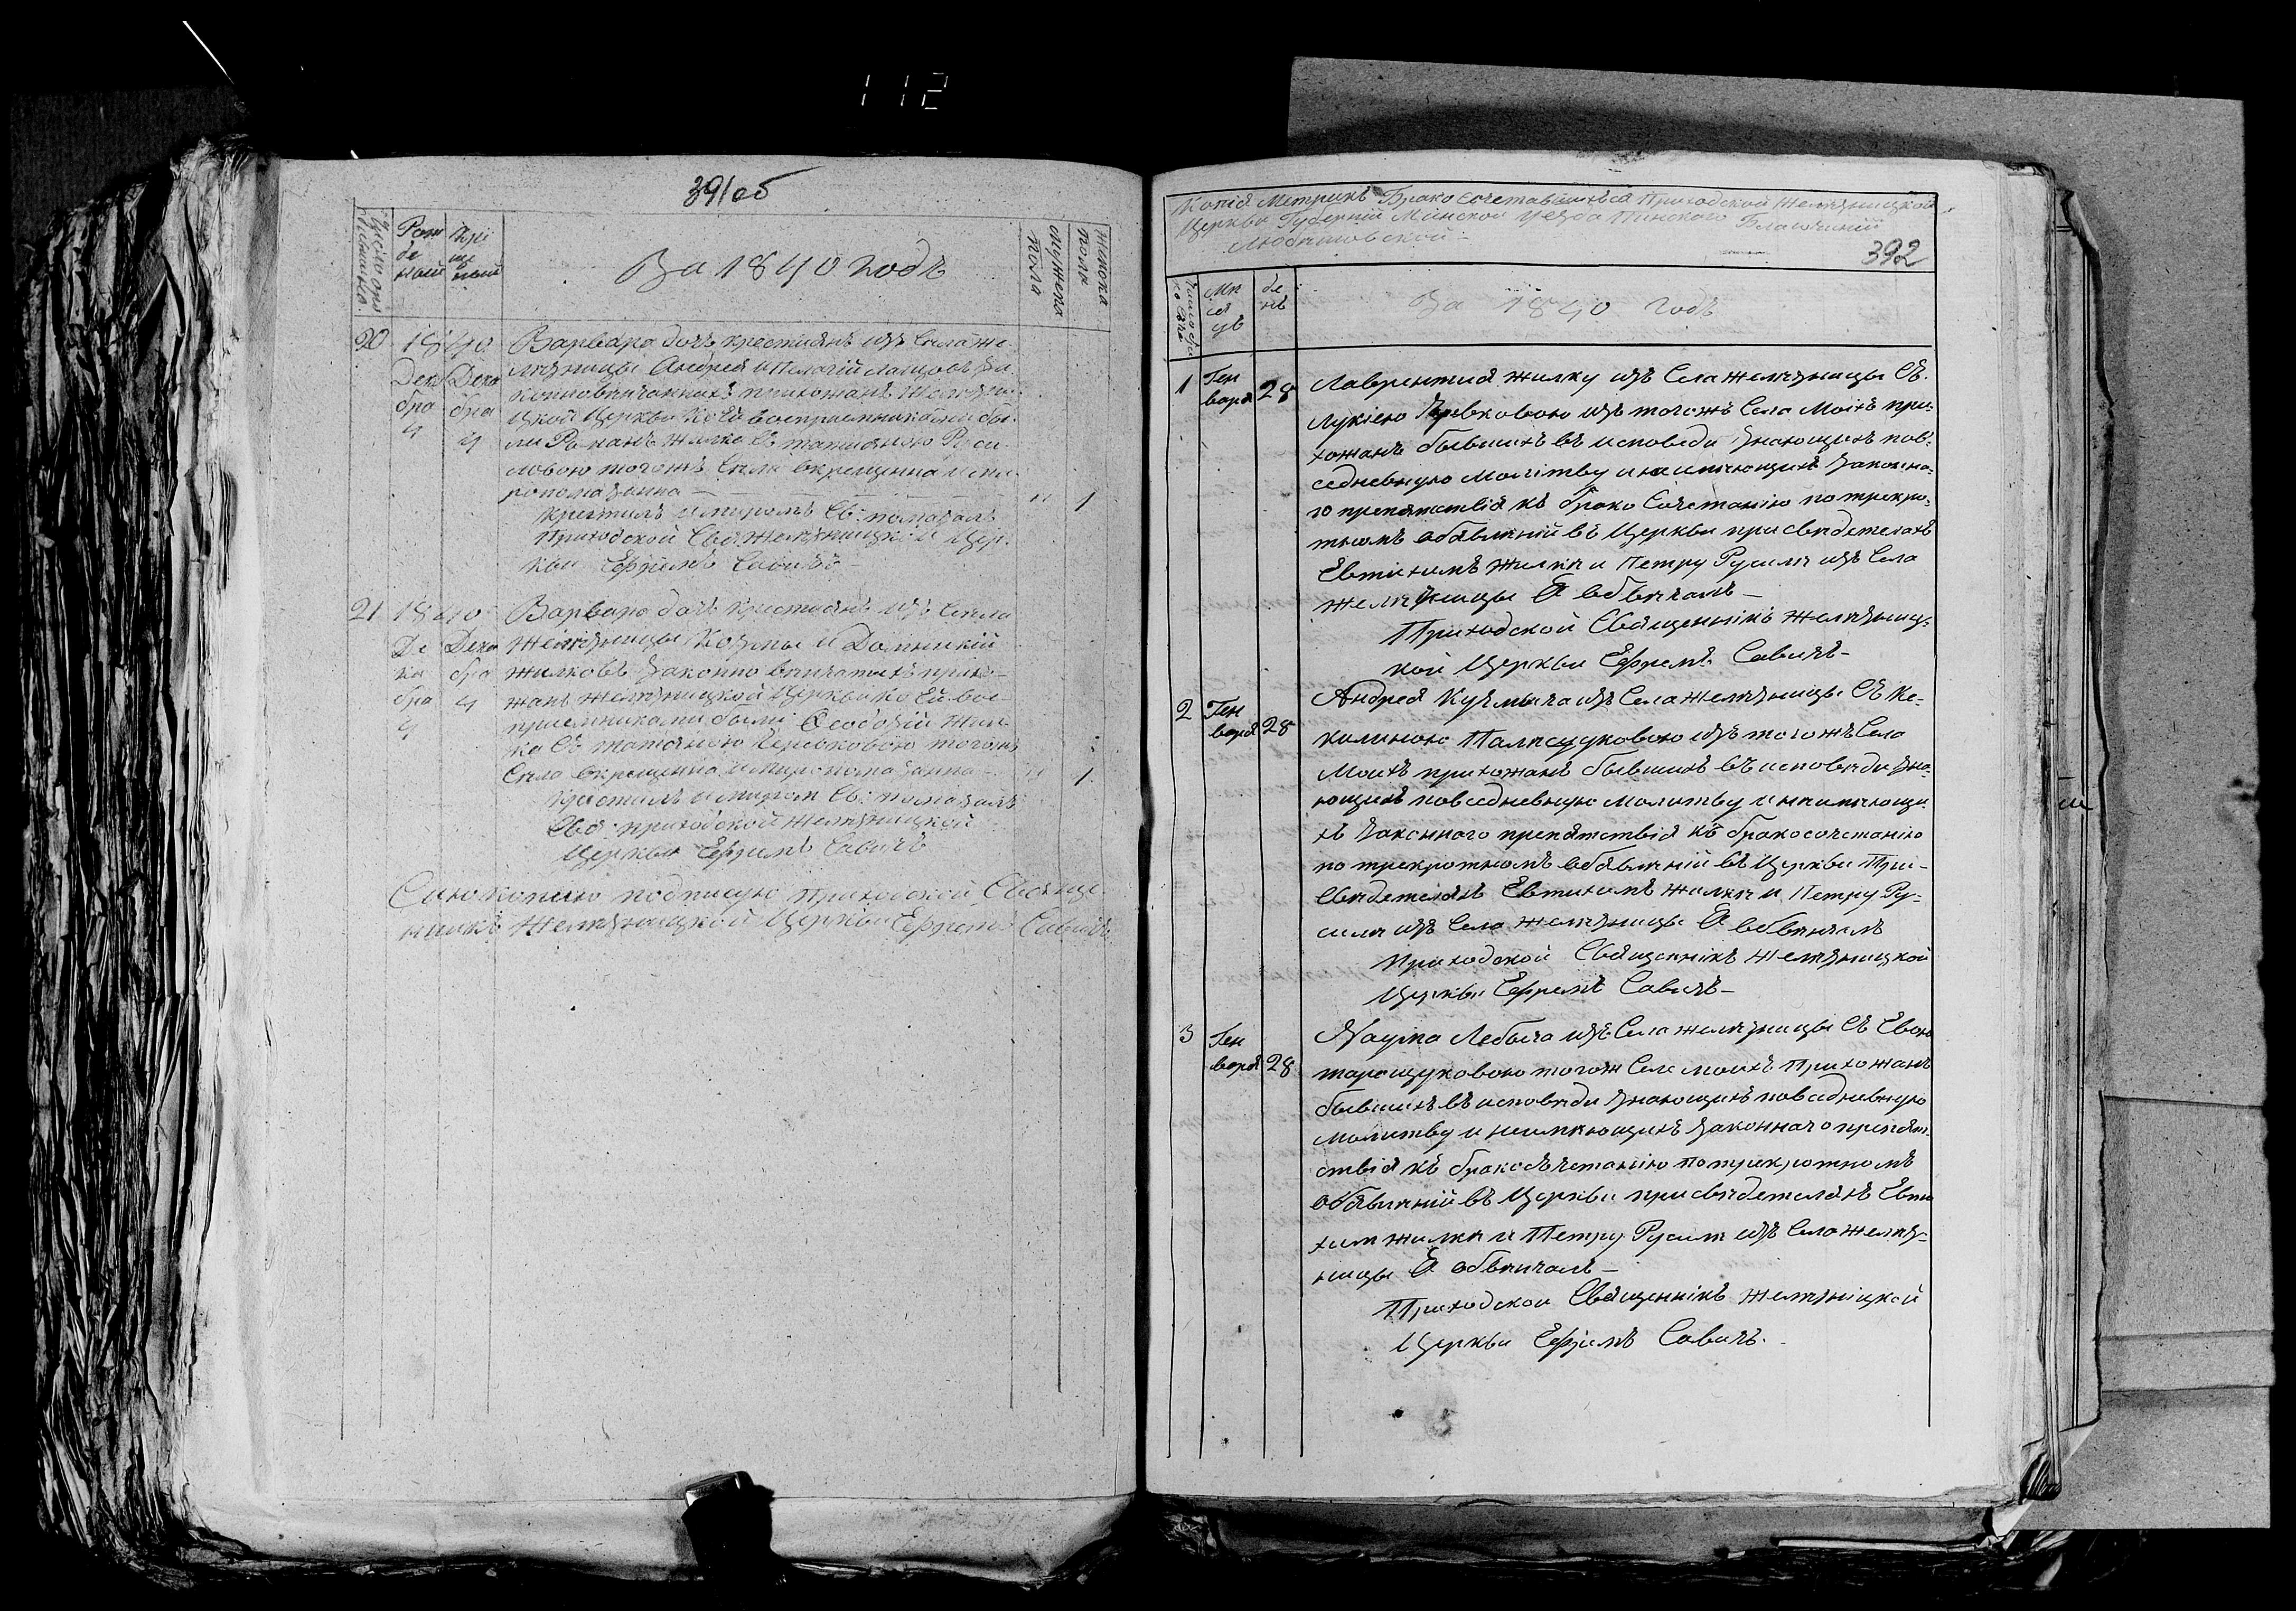 112
391об
Число крещенно.
Рож де ный
Кре ще ный
За 1840 годъ
мужеска пола
женска пола
20 1840 Варвара дочъ крестіянъ изъ Села Же-
Дека Дека лѣзницы Андрея и Пелагіи За-
бра бра конновѣнчанныхъ прихожанъ Желѣзни-
4 4 цкой Церкви Ко Ей воспріемниками бы-
ли Романъ Жилко Съ татіяною Руси-
ловою тогожъ Села окрещенна и ми-
ропомазанна — " 1
крестилъ и миромъ Св: помазалъ
Приходской Свя: Желѣзницкій Цер-
кви Ефремъ Савичъ —
21 1840 Варвара дочъ Крестіянъ изъ Села
Де Дека Желѣзницы Козмы и Домникіи
ка бра Жилковъ Законно вѣнчаныхъ прихо-
бра 4 жанъ Желѣзницкой Церкви Ко Ей вос-
4 пріемниками были Ѳеодосій Жил-
ко Съ татіяною тогожъ
Села окрещенна и Миропомазанна — " 1
Крестилъ и миром Св: помазалъ
Свя: приходской Желѣзницкой
Церкви Ефремъ Савичъ
Сию копию подписую приходской Свяще-
нникъ Желѣзницкой Церкви Ефремъ Савичъ
Копія Метрикъ Бракосочетавшихся Приходской Желѣзницкой
Церкви Губерніи Минской Уезда Пинского Благочинія
Любашовской —
392
Мѣ ся цъ
де нь
За 1840 годъ
1 Ген варя 28 Лаврентія Жилку изъ Села Желѣзницы Съ
Лукіею изъ тогожъ Села Моихъ при-
хожанъ бывшихъ въ исповеди Знающихъ пов-
седневную Молитву и не имѣющихъ Законна-
го препятствія къ Брако Сочетанію по трекра-
тномъ обявленіи въ Церкви при свидетеляхъ
Евтихимъ Жилки и Петру Русили изъ Села
Желѣзницы Я обвѣнчалъ —
Приходской Священникъ Желѣзниц-
кой Церкви Ефремъ Савичъ —
2 Ген варя 28 Андрея Кузмича изъ Села Желѣзницы Съ Ке-
килиною изъ тогожъ Села
Моихъ прихожанъ бывшихъ въ исповѣди Зна-
ющихъ повседневную молитву и неимѣющи-
хъ Законного препятствія къ бракосочетанію
по трекротномъ обявленіи въ Церкви При-
Свидетеляхъ Евтихимъ Жилки и Петру Ру-
сили изъ Села Желѣзницы Я обвѣнчалъ
приходской Священникъ Желѣзницкой
Церкви Ефремъ Савичъ —
3 Ген варя 28 Наума Лебича изъ Села Желѣзницы Съ Евою
таращуковою тогож Села моихъ Прихожанъ
бывшихъ въ исповѣди Знающихъ повседневную
молитву и неимѣющихъ Законнаго препят-
ствія къ бракосочетанію по трекротномъ
обявленіи въ Церкви при свидетеляхъ Евти
хим жилки и Петру Русили изъ Села Желѣз-
ницы Я обвѣнчалъ —
Приходской Священникъ Желѣзницкой
Церкви Ефремъ Савичъ.